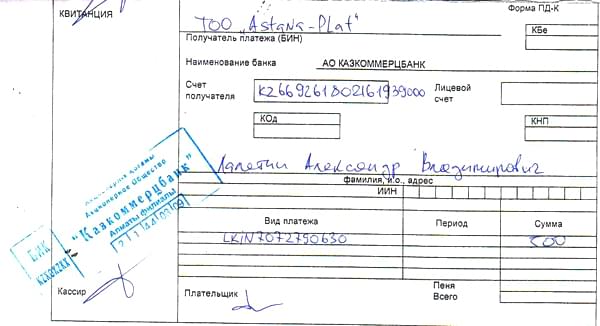 Форма ПД-К
КВИТАНЦИЯ
ТОО "Astana-Plat"
КБе
Получатель платежа (БИН)
Наименование банка АО КАЗКОММЕРЦБАНК
Счет получателя KZ669261802161939000 Лицевой счет
КОд КНП
Александр Владимирович
фамилия, и.о., адрес
ИИН
Акционерное Общество
"Казкоммерцбанк"
Алматы филиалы
БИК
KZKOKZKX
Вид платежа Период Сумма
LKIN7072790630 500
Пеня
Всего
Кассир Плательщик